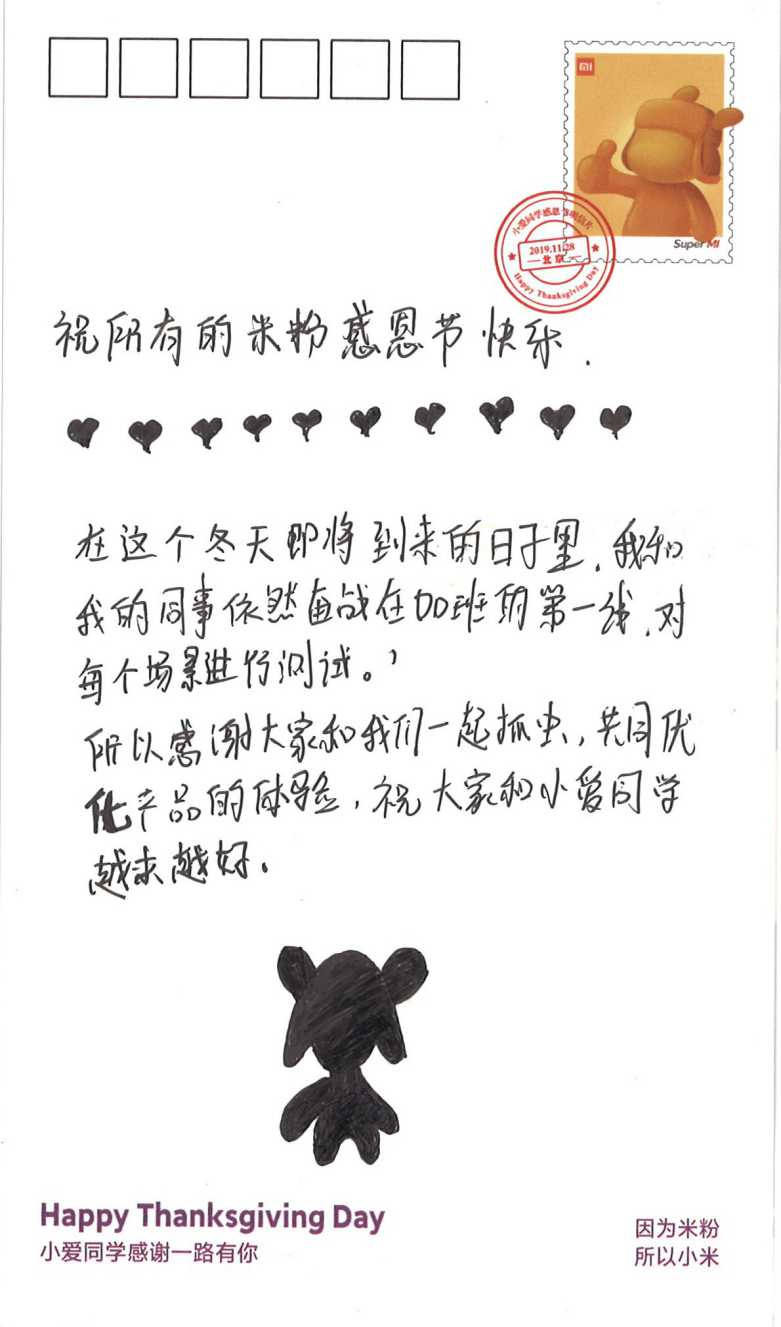 mi
Super MI
小爱同学感恩节明信片
2019.11.28
北京
Happy Thanksgiving Day
祝所有的米粉感恩节快乐.
在这个冬天即将到来的日子里,我和
我的同事依然奋战在加班的第一线,对
每个场景进行测试。
所以感谢大家和我们一起抓虫,共同优
化产品的体验,祝大家和小爱同学
越来越好.
Happy Thanksgiving Day
小爱同学感谢一路有你
因为米粉
所以小米